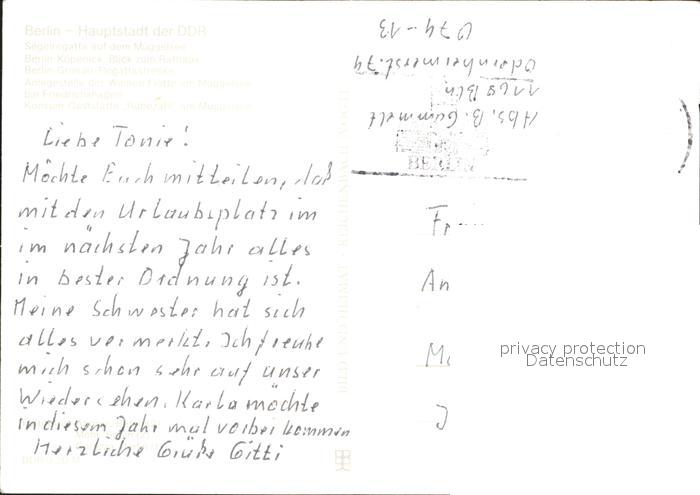 Berlin – Hauptstadt der DDR
Segelregatta auf dem Müggelsee
Berlin-Köpenick, Blick zum Rathaus
Berlin-Grünau, Regattastrecke
Anlegestelle der Weißen Flotte am Müggelsee
bei Friedrichshagen
Konsum-Gaststätte „Rübezahl“ am Müggelsee
Liebe Tonie!
Möchte Euch mitteilen, daß
mit den Urlaubsplatz im
im nächsten Jahr alles
in bester Ordnung ist.
Meine Schwester hat sich
alles vermerkt. Ich freuhe
mich schon sehr auf unser
Wiedersehen. Karla möchte
in diesem Jahr mal vorbei kommen
Herzliche Grüße Gitti
BILD UND HEIMAT · REICHENBACH · VOGTL
Abs. B. Gammelt
Bln
Odernheimerst. 74
BERLIN
Fr
An
M
J
privacy protection
Datenschutz